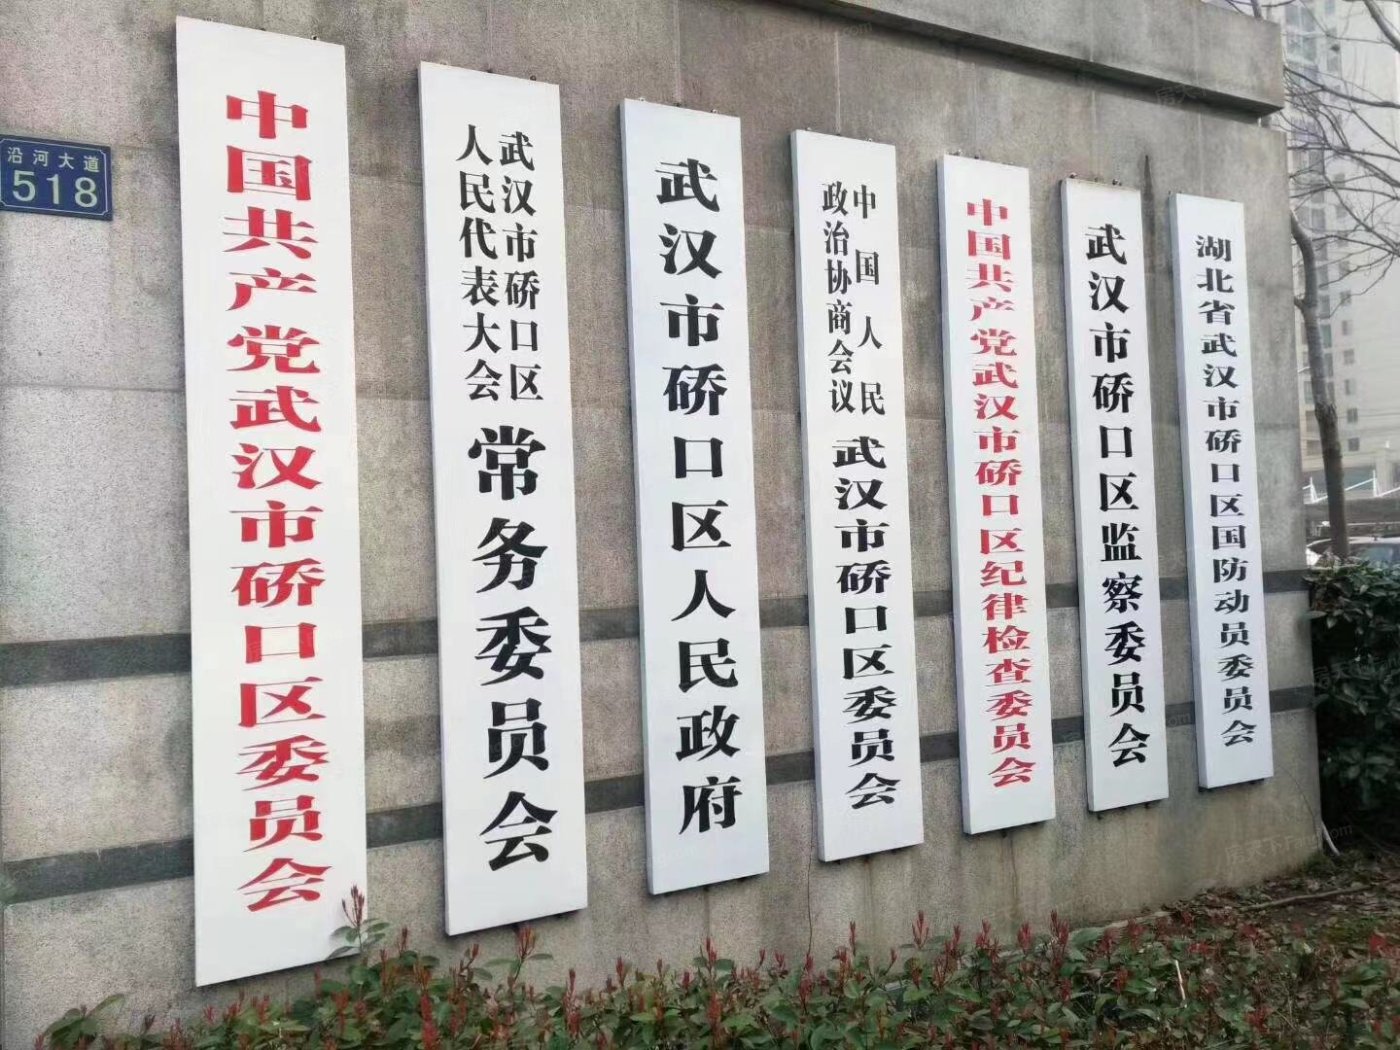 沿河大道
518
中国共产党武汉市硚口区委员会
武汉市硚口区
人民代表大会
常务委员会
武汉市硚口区人民政府
中国人民
政治协商会议
武汉市硚口区委员会
中国共产党武汉市硚口区纪律检查委员会
武汉市硚口区监察委员会
湖北省武汉市硚口区国防动员委员会